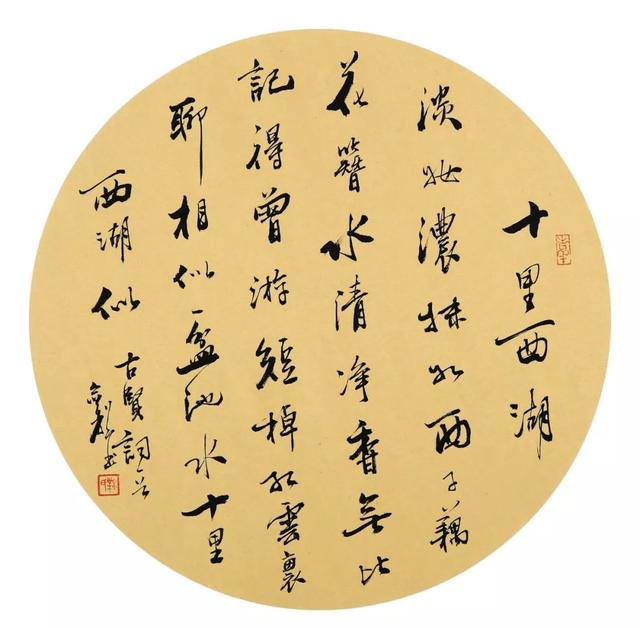 十里西湖
淡妆濃抹如西子藕
花簪水清净香無比
記得曾游短棹紅雲裏
聊相似一盆池水十里
西湖似
古賢詞